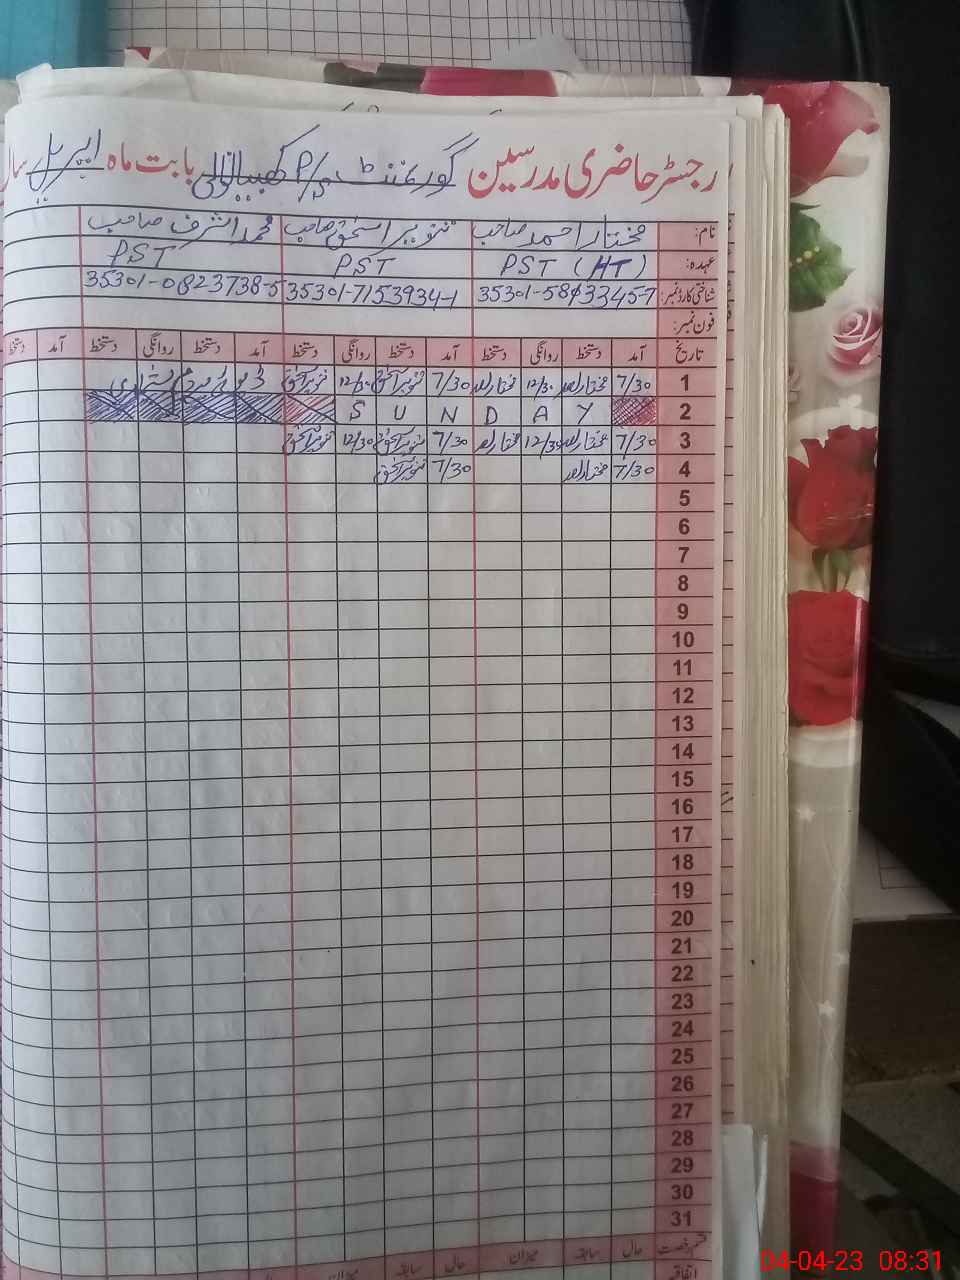 رجسٹر حاضری مدرسین گورنمنٹ P/S بابت ماہ اپریل سال
نام: مختار احمد صاحب تنویر اسحق صاحب محمد اشرف صاحب
عہدہ: PST (HT) PST PST
شناختی کارڈ نمبر: 35301-7153934-1 35301-0823738-5
فون نمبر:
تاریخ آمد دستخط روانگی دستخط آمد دستخط روانگی دستخط آمد دستخط روانگی دستخط آمد دستخط
1 7/30 12/30 7/30 12/30
2 S U N D A Y
3 7/30 12/30 7/30 12/30
4 7/30 7/30
5
6
7
8
9
10
11
12
13
14
15
16
17
18
19
20
21
22
23
24
25
26
27
28
29
30
31
قسم رخصت حال سابقہ میزان حال سابقہ میزان حال
اتفاقیہ
04-04-23 08:31